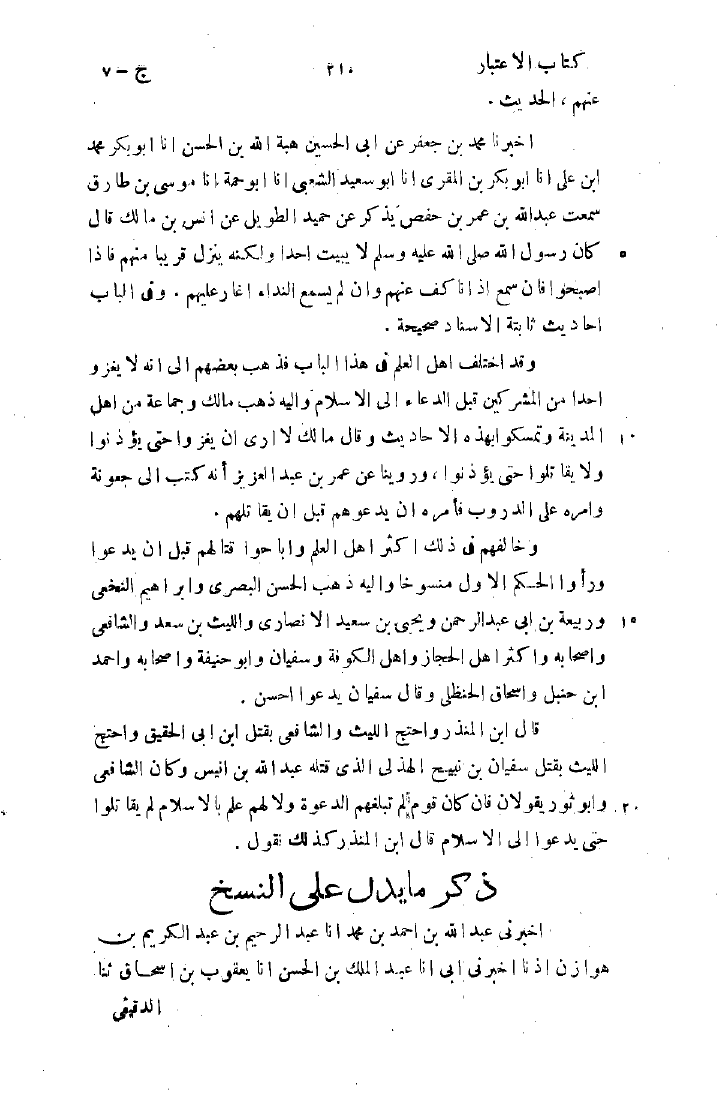 كتاب الاعتبار ٢١٠ ج - ٧
عنهم، الحديث .
اخبرنا محمد بن جعفر عن ابى الحسين هبة الله بن الحسن انا ابوبكر محمد
ابن على انا ابوبكر بن المقرى انا ابوسعيد الشعبى انا ابوحمة انا موسى بن طارق
سمعت عبدالله بن عمر بن حفص يذكر عن حميد الطويل عن انس بن مالك قال
كان رسول الله صلى الله عليه وسلم لا يبيت احدا ولكنه ينزل قريبا منهم فاذا ٥
اصبحوا فان سمع اذانا كف عنهم وان لم يسمع النداء اغار عليهم . وفى الباب
احاديث ثابتة الاسناد صحيحة .
وقد اختلف اهل العلم فى هذا الباب فذهب بعضهم الى انه لا يغزو
احدا من المشركين قبل الدعاء الى الاسلام واليه ذهب مالك وجماعة من اهل
المدينة وتمسكوا بهذه الاحاديث وقال مالك لا ارى ان يغزوا حتى يؤذنوا ١٠
ولا يقاتلوا حتى يؤذنوا، وروينا عن عمر بن عبد العزيز أنه كتب الى جعونة
وامره على الدروب فأمره ان يدعوهم قبل ان يقاتلهم .
وخالفهم فى ذلك اكثر اهل العلم واباحوا قتالهم قبل ان يدعوا
ورأوا الحكم الاول منسوخا واليه ذهب الحسن البصرى وابراهيم النخعى
وربيعة بن ابى عبدالرحمن ويحيى بن سعيد الانصارى والليث بن سعد والشافعى ١٥
واصحابه واكثر اهل الحجاز واهل الكوفة وسفيان وابوحنيفة واصحابه واحمد
ابن حنبل واسحاق الحنظلى وقال سفيان يدعوا احسن .
قال ابن المنذر واحتج الليث والشافعى بقتل ابن ابى الحقيق واحتج
الليث بقتل سفيان بن نبيح الهذلى الذى قتله عبدالله بن انيس وكان الشافعى
وابوثور يقولان فان كان قوم لم تبلغهم الدعوة ولا لهم علم بالاسلام لم يقاتلوا ٢٠
حتى يدعوا الى الاسلام قال ابن المنذر كذلك نقول .
ذكر ما يدل على النسخ
اخبرنى عبدالله بن احمد بن محمد انا عبد الرحيم بن عبد الكريم بن
هوازن اذنا اخبرنى ابى انا عبد الملك بن الحسن انا يعقوب بن اسحاق ثنا
الدقيقى